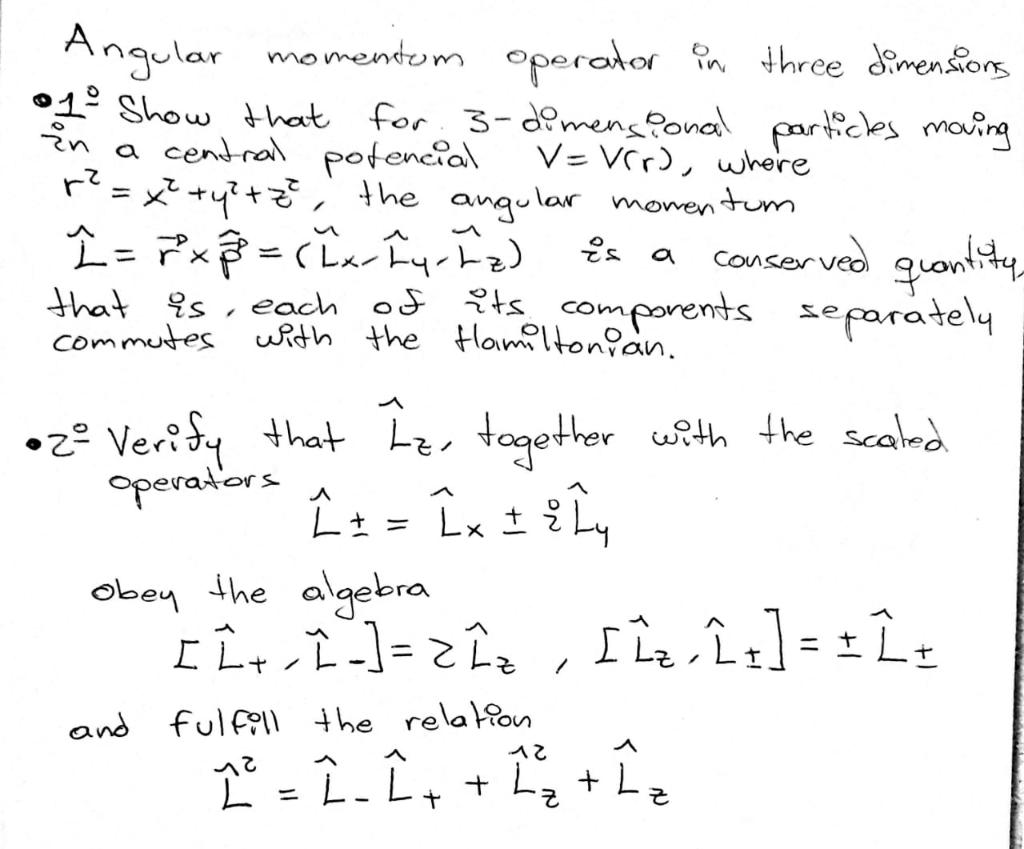 Angular momentum operator in three dimensions
•1º Show that for 3-dimensional particles moving
in a central potencial V=V(r), where
r²=x²+y²+z², the angular momentum
L̂ = r⃗×p̂⃗ = (L̂x, L̂y, L̂z) is a conserved quantity,
that is, each of its components separately
commutes with the Hamiltonian.
•2º Verify that L̂z, together with the scaled
operators
L̂± = L̂x ± iL̂y
obey the algebra
[L̂+, L̂-] = 2L̂z , [L̂z, L̂±] = ±L̂±
and fulfill the relation
L̂² = L̂-L̂+ + L̂z² + L̂z